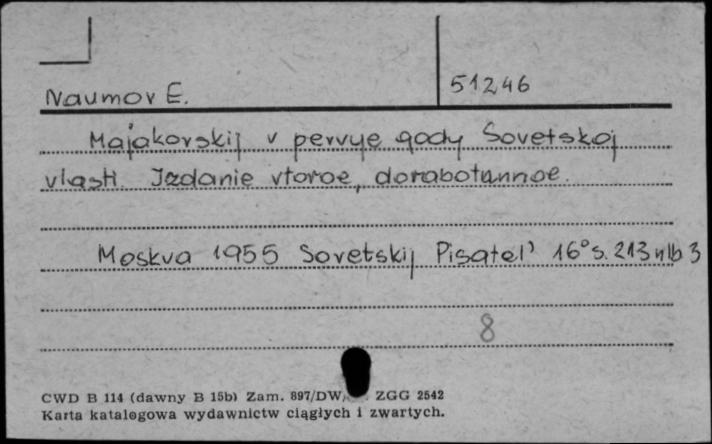 Naumov E.
51246
Majakovskij v pervye gody Sovetskoj
vlasti. Izdanie vtoroe, dorabotannoe.
Moskva 1955 Sovetskij Pisatel' 16° s. 213 nlb 3
8
CWD B 114 (dawny B 15b) Zam. 897/DW ZGG 2542
Karta katalogowa wydawnictw ciągłych i zwartych.